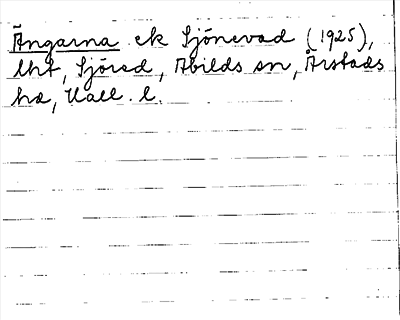 Ängarna ek Sjönevad (1925),
lht, Sjöred, Abilds sn, Årstads
hd, Hall. l.